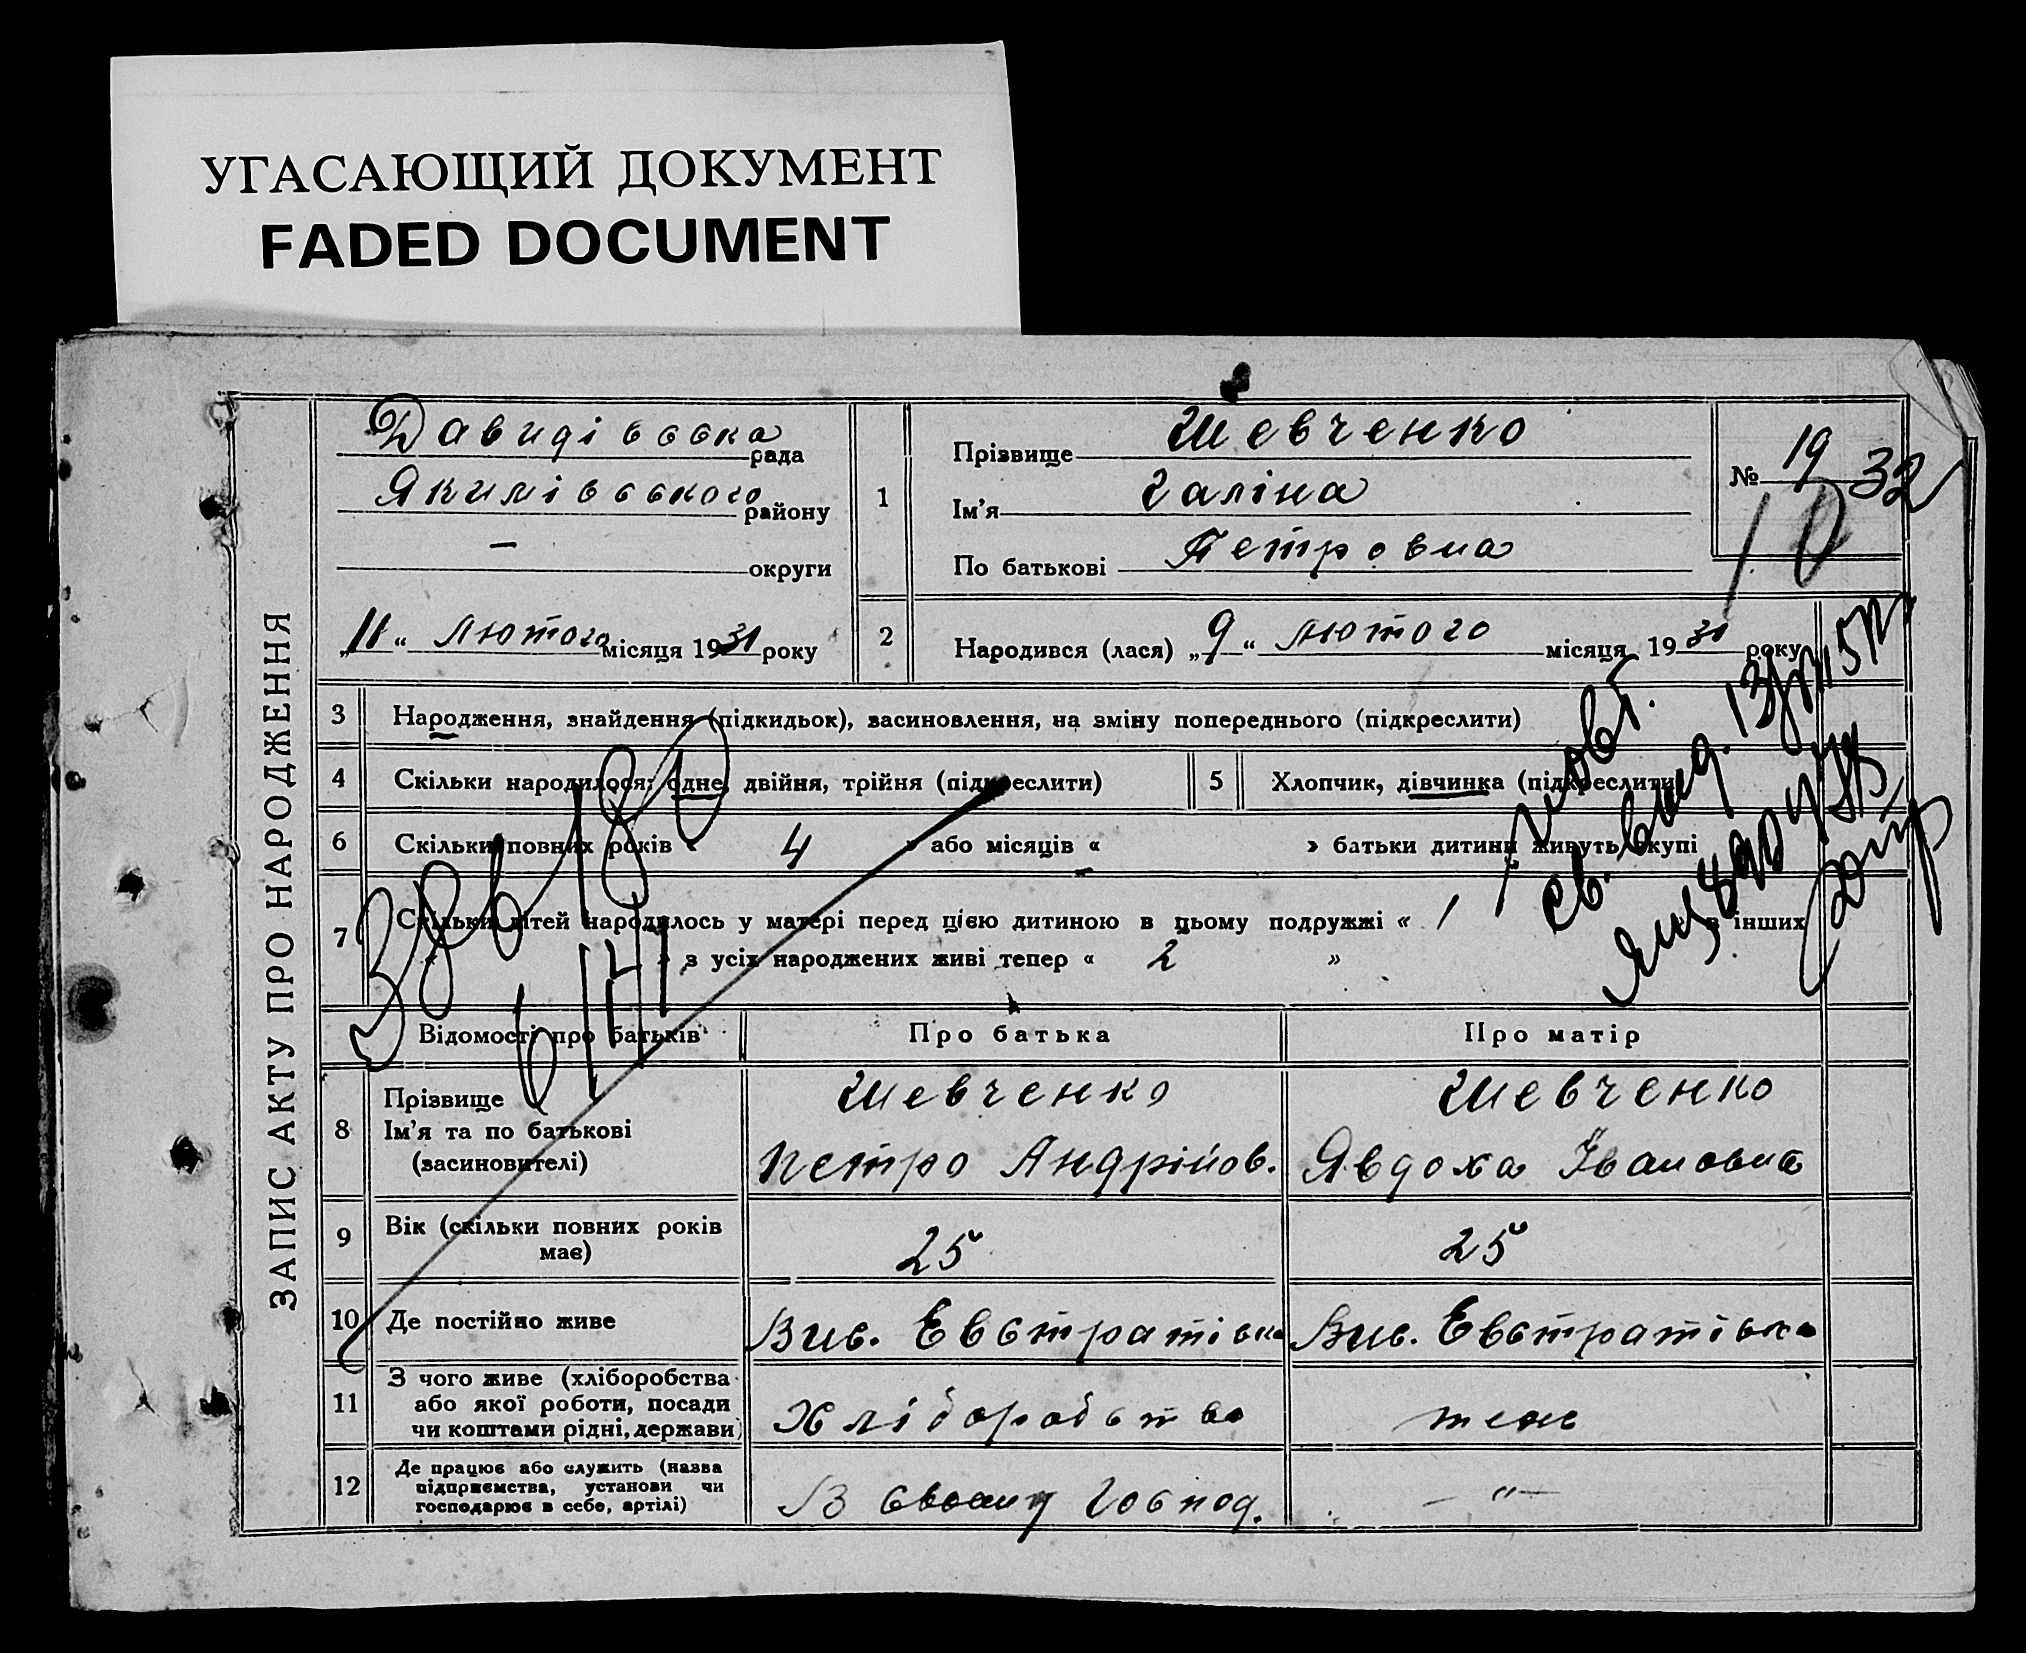 УГАСАЮЩИЙ ДОКУМЕНТ
FADED DOCUMENT
ЗАПИС АКТУ ПРО НАРОДЖЕННЯ
Давидівська рада
Якимівського району
— округи
„11“ лютого місяця 1931 року
1
Прізвище Шевченко
Ім'я Галіна
По батькові Петровна
№ 19
32
10
2
Народився (лася) „9“ лютого місяця 1931 року
3 Народження, знайдення (підкидьок), засиновлення, на зміну попереднього (підкреслити)
4 Скільки народилося: одне, двійня, трійня (підкреслити)
5 Хлопчик, дівчинка (підкреслити)
6 Скільки повних років « 4 » або місяців « — » батьки дитини живуть вкупі
7 Скільки дітей народилось у матері перед цією дитиною в цьому подружжі « 1 в інших
« » з усіх народжених живі тепер « 2 »
Відомості про батьків
Про батька
Про матір
8 Прізвище
Ім'я та по батькові
(засиновителі)
Шевченко
Петро Андрійов.
Шевченко
Явдоха Івановна
9 Вік (скільки повних років
має)
25
25
10 Де постійно живе
Вис. Евстратівка
Вис. Евстратівка
11 З чого живе (хліборобства
або якої роботи, посади
чи коштами рідні, держави)
Хліборобство
теж
12 Де працює або служить (назва
підприємства, установи чи
господарює в себе, артілі)
В своому господ.
— " —